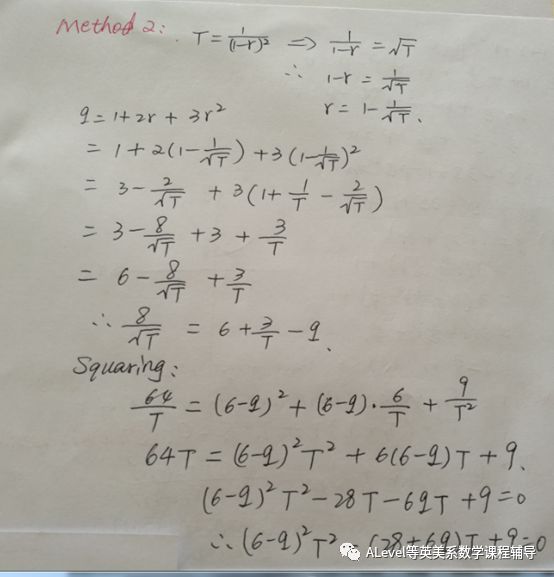 Method 2: T = 1/(1-r)² ⇒ 1/(1-r) = √T
∴ 1-r = 1/√T
r = 1 - 1/√T.
q = 1 + 2r + 3r²
= 1 + 2(1 - 1/√T) + 3(1 - 1/√T)²
= 3 - 2/√T + 3(1 + 1/T - 2/√T)
= 3 - 8/√T + 3 + 3/T
= 6 - 8/√T + 3/T
∴ 8/√T = 6 + 3/T - q.
Squaring:
64/T = (6-q)² + (6-q)·6/T + 9/T²
64T = (6-q)²T² + 6(6-q)T + 9.
(6-q)²T² - 28T - 6qT + 9 = 0
∴ (6-q)²T² - (28+6q)T + 9 = 0
ALevel等英美系数学课程辅导